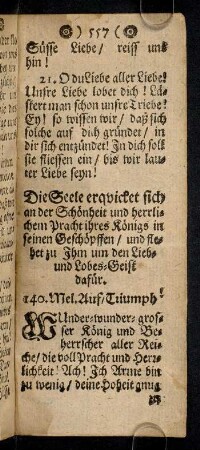 557
Süsse Liebe/ reiß uns
hin!
21. O du Liebe aller Liebe!
Unsre Liebe lobet dich! Lä-
stert man schon unsre Triebe!
Ey! so wissen wir/ daß sich
solche auf dich gründet/ in
dir sich entzündet! In dich solt
sie fliessen ein/ bis wir lau-
ter Liebe seyn!
Die Seele erqvicket sich
an der Schönheit und herrli-
chem Pracht ihres Königs in
seinen Geschöpffen/ und fle-
het zu Ihm um den Lieb-
und Lobes-Geist
dafür.
140. Mel. Auf/ Triumph!
WUnder-wunder-gros-
ser König und Be-
herrscher aller Rei-
che/ die voll Pracht und Herr-
lichkeit! Ach! Ich Arme bin
zu wenig/ deine Hoheit gnug